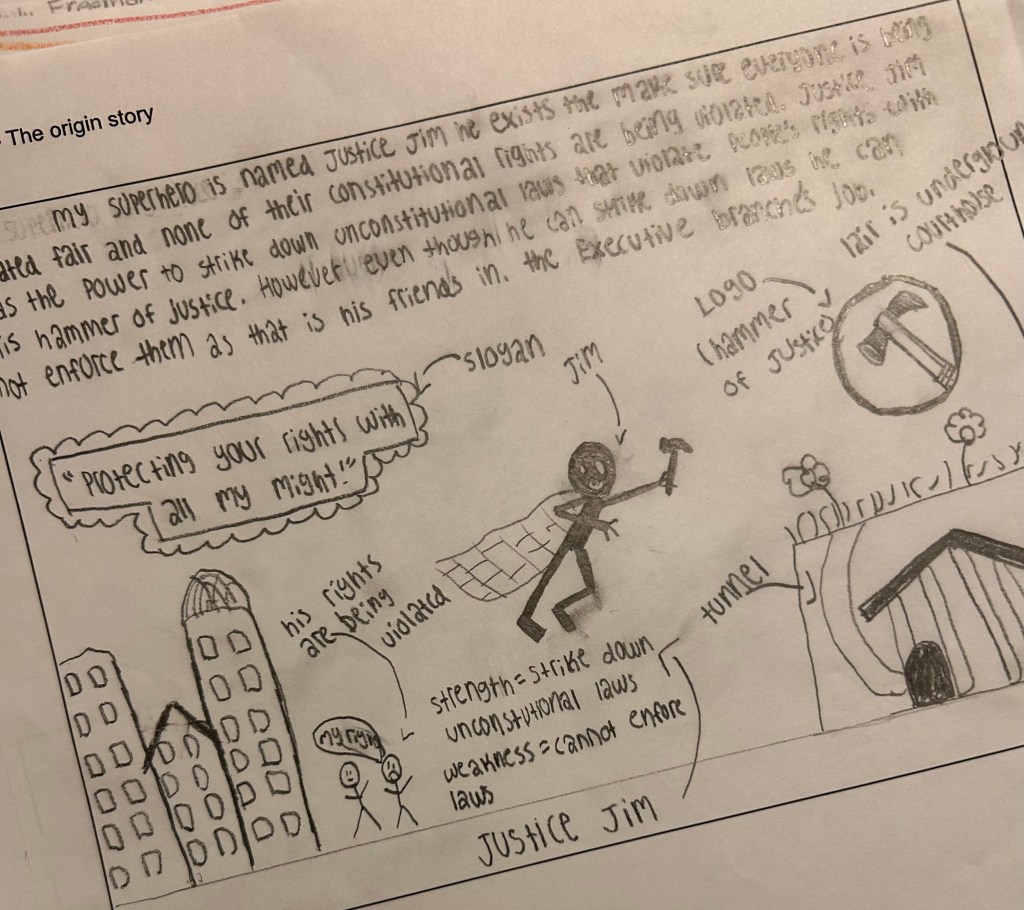 Fragmen
The origin story
my superhero is named Justice Jim he exists the make sure everyone is being
ated fair and none of their constitutional rights are being violated. Justice Jim
as the power to strike down unconstitutional laws that violate people's rights with
is hammer of justice. However even though he can strike down laws he can
not enforce them as that is his friends in. the Executive branches job.
slogan
"Protecting your rights with
all my might!"
Jim
Logo
(hammer
of justice)
lair is undergroun
courthouse
his rights
are being
violated
my right
strength = strike down
unconstutional laws
weakness = cannot enfore
laws
tunnel
Justice Jim